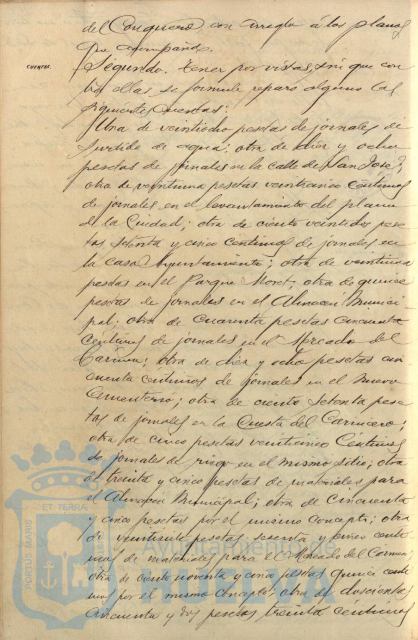 del Conquero con arreglo a los planos
que acompaña.
CUENTAS.
Segundo. Tener por vistas, sin que con-
tra ellas se formule reparo alguno las
siguientes cuentas:
Una de veintiocho pesetas de jornales de
surtido de agua; otra de diez y ocho
pesetas de jornales en la calle de San José;
otra de veintiuna pesetas veinticinco céntimos
de jornales en el levantamiento del plano
de la Ciudad; otra de ciento veintidos pese-
tas setenta y cinco centimos de jornales en
la casa Ayuntamiento; otra de veintiuna
pesetas en el Parque Moret, otra de quince
pesetas de jornales en el Almacen Munici-
pal; otra de cuarenta pesetas cincuenta
centimos de jornales en el Mercado del
Carmen; otra de diez y ocho pesetas cin-
cuenta centimos de jornales en el Nuevo
Cementerio; otra de ciento setenta pese-
tas de jornales en la Cuesta del Carnicero;
otra de cinco pesetas veinticinco céntimos
de jornales de riego en el mismo sitio; otra
de treinta y cinco pesetas de materiales para
el Almacen Municipal; otra de cincuenta
y cinco pesetas por el mismo concepto; otra
de veintisiete pesetas sesenta y cinco centi-
mos de materiales para el Mercado del Carmen
otra de ciento noventa y cinco pesetas quince centi-
mos por el mismo concepto; otra de doscientas
cincuenta y dos pesetas treinta centimos
PORTUS MARIS
ET TERRAE
Ayuntamiento de
HUELVA